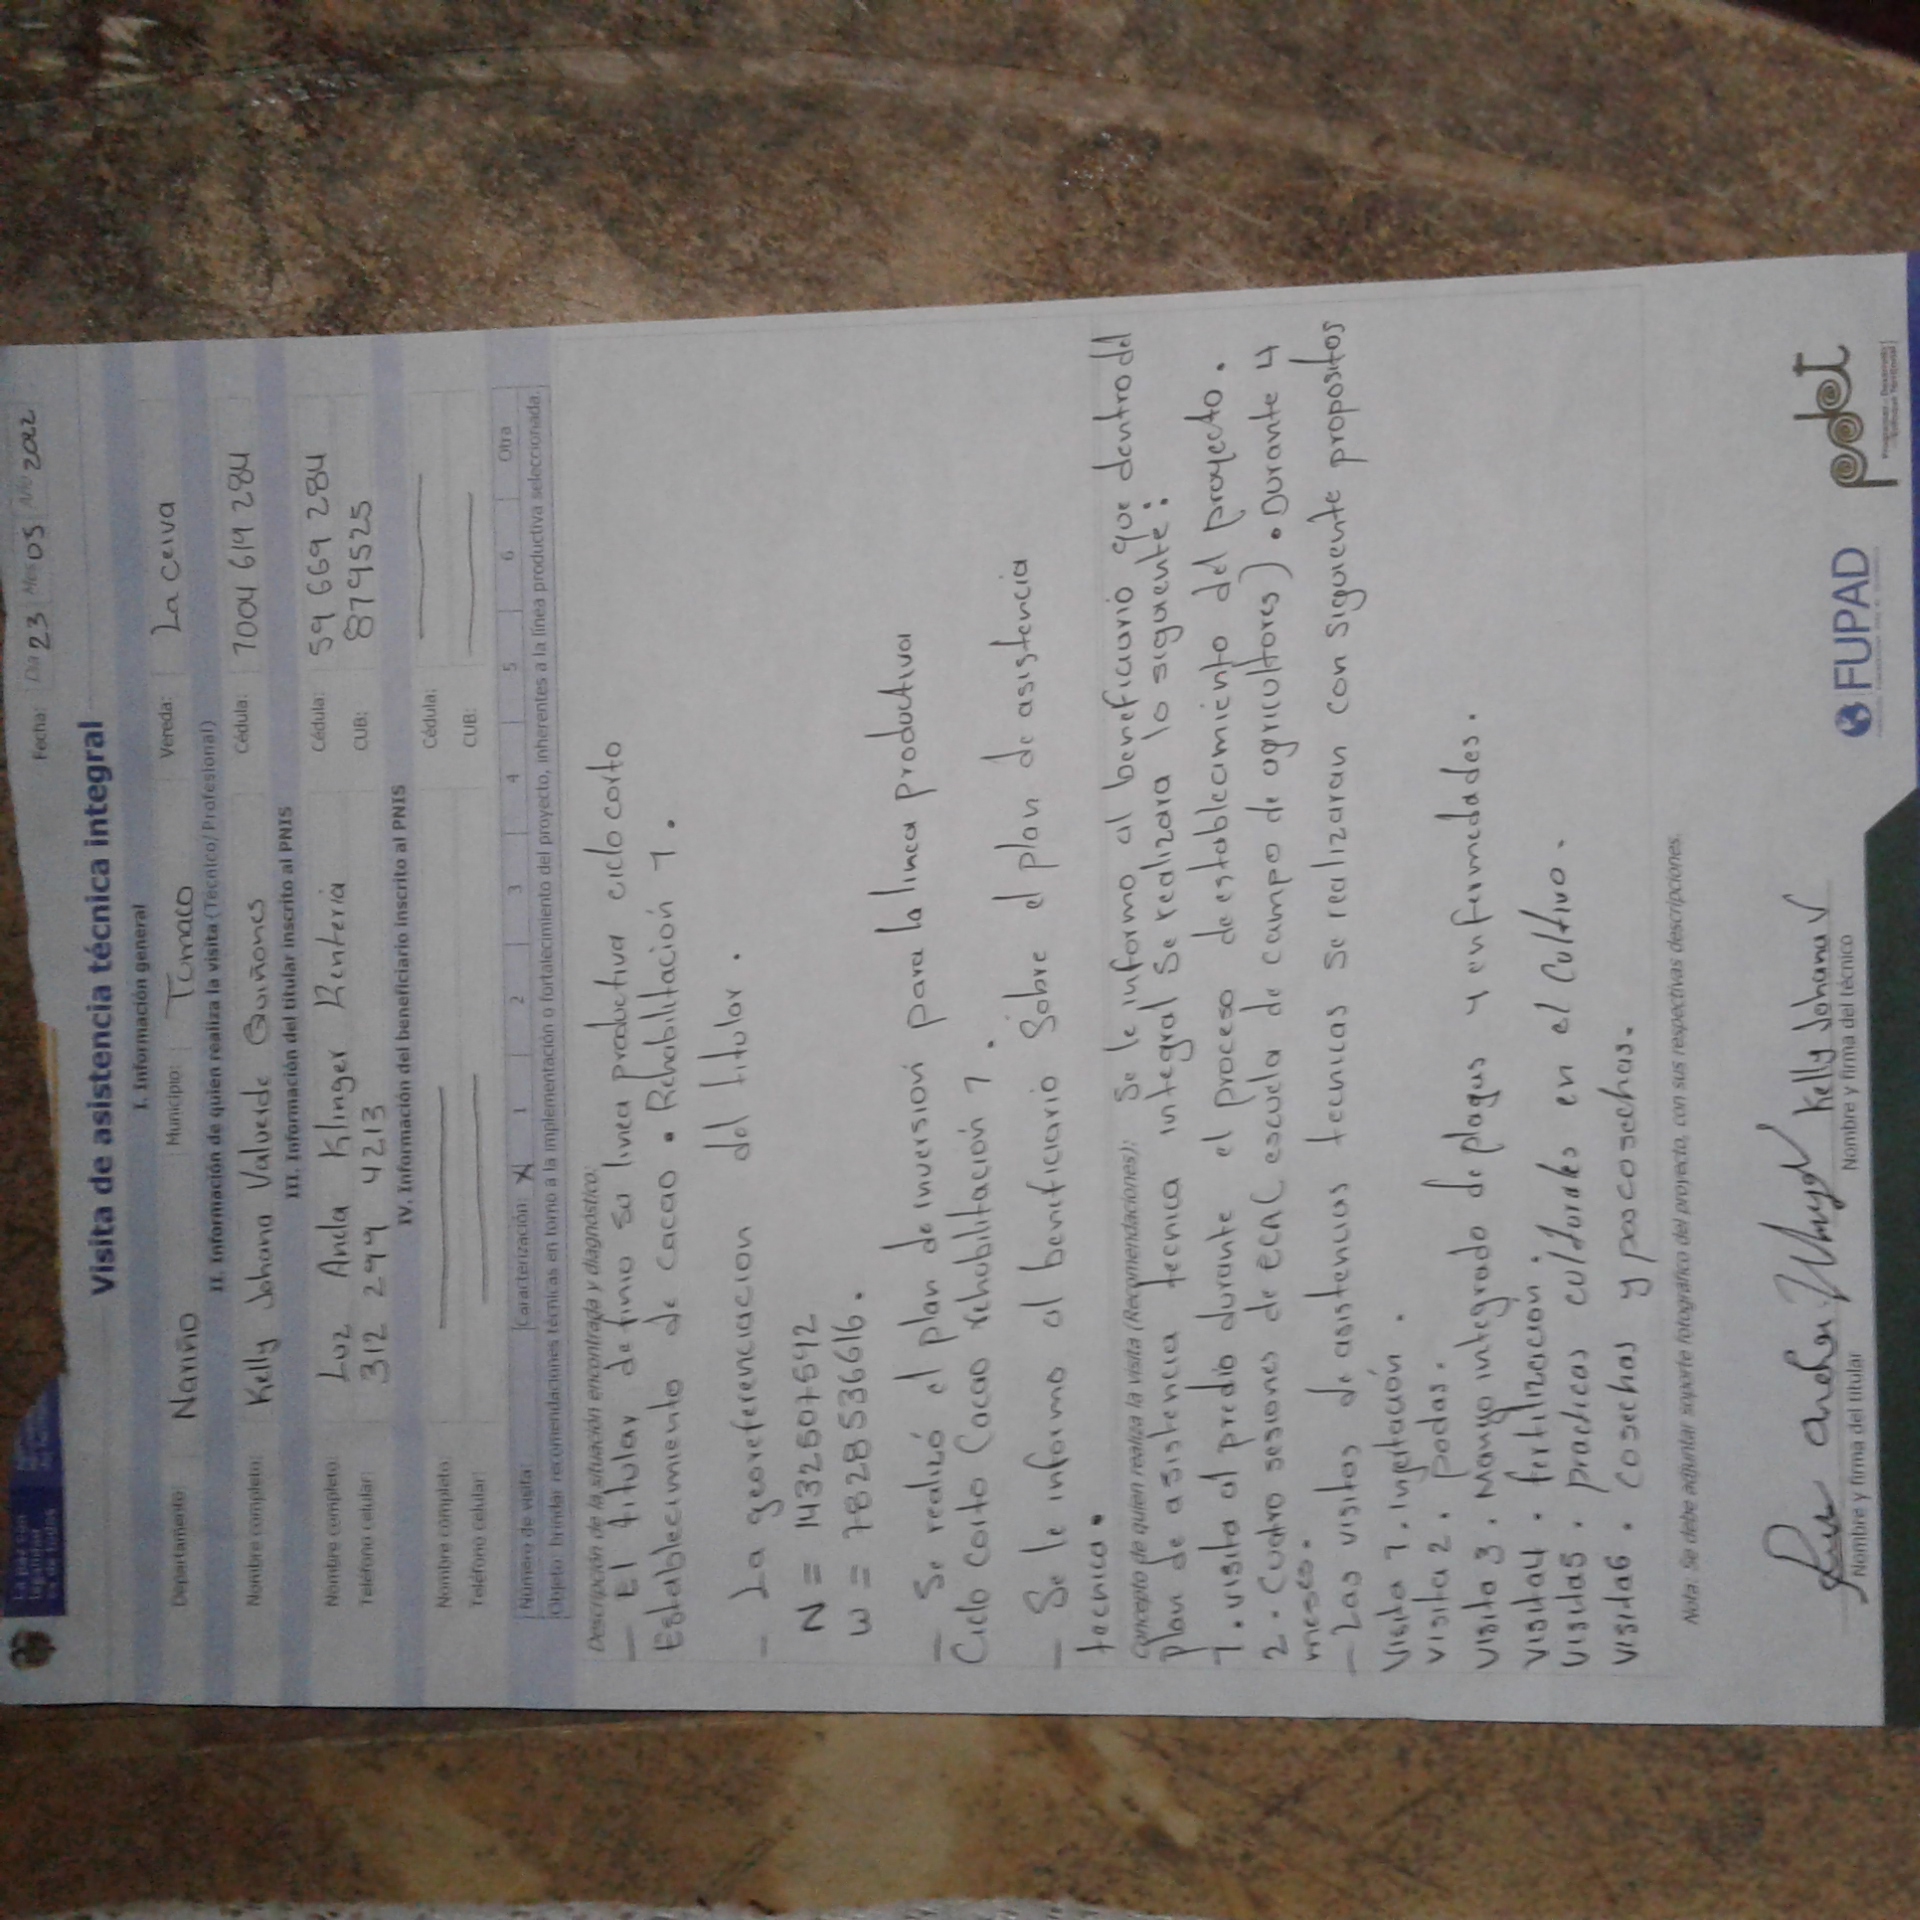 La paz con
legalidad
es de todos
Fecha: Día 23 Mes 05 Año 2022
Visita de asistencia técnica integral
I. Información general
Departamento: Nariño Municipio: Tumaco Vereda: La Ceiva
II. Información de quien realiza la visita (Técnico/Profesional)
Nombre completo: Kelly Johana Valverde Quiñones Cédula: 1004 619 284
III. Información del titular inscrito al PNIS
Nombre completo: Luz Anela Klinger Renteria Cédula: 59 669 284
Teléfono celular: 312 299 4213 CUB: 8749525
IV. Información del beneficiario inscrito al PNIS
Nombre completo: Cédula:
Teléfono celular: CUB:
Número de visita: Caracterización: X 1 2 3 4 5 6 Otra
Objeto: brindar recomendaciones técnicas en torno a la implementación o fortalecimiento del proyecto, inherentes a la línea productiva seleccionada.
Descripción de la situación encontrada y diagnóstico:
- El titular definio su linea productiva ciclo corto
Establecimiento de cacao. Rehabilitación 1.
- La georeferenciacion del titular.
N = 1432607542
W = 7828536616.
- Se realizó el plan de inversión para la linea productiva
Ciclo corto Cacao rehabilitación 1.
- Se le informo al benificiario Sobre el plan de asistencia
tecnica.
Concepto de quien realiza la visita (Recomendaciones): Se le informo al beneficiario que dentro del
plan de asistencia tecnica integral Se realizara lo siguiente:
1. visita al predio durante el proceso de establecimiento del proyecto.
2. Cuatro sesiones de ECA( escuela de campo de agricultores). Durante 4
meses.
- Las visitas de asistencias tecnicas se realizaran con siguiente propositos
Visita 1. Injetación.
Visita 2. podas.
Visita 3. Manejo integrado de plagas y enfermedades.
Visita 4. fertilización.
Visita 5. practicas culturales en el cultivo.
Visita 6. Cosechas y poscosechas.
Nota: Se debe adjuntar soporte fotográfico del proyecto, con sus respectivas descripciones.
Kelly Johana V
Nombre y firma del titular Nombre y firma del técnico
FUPAD pdet
Programas de Desarrollo
con Enfoque Territorial